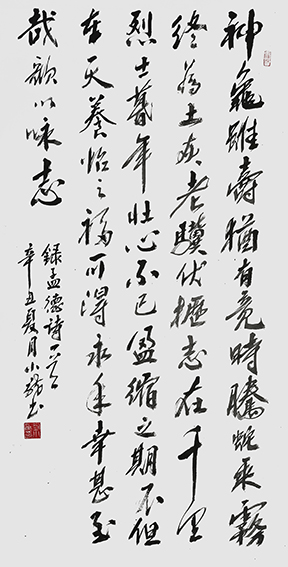 神龜雖壽猶有竟時騰蛇乘霧
終為土灰老驥伏櫪志在千里
烈士暮年壯心不已盈縮之期不但
在天養怡之福可得永年幸甚至
哉歌以咏志
録孟德詩一首
辛丑夏月小書